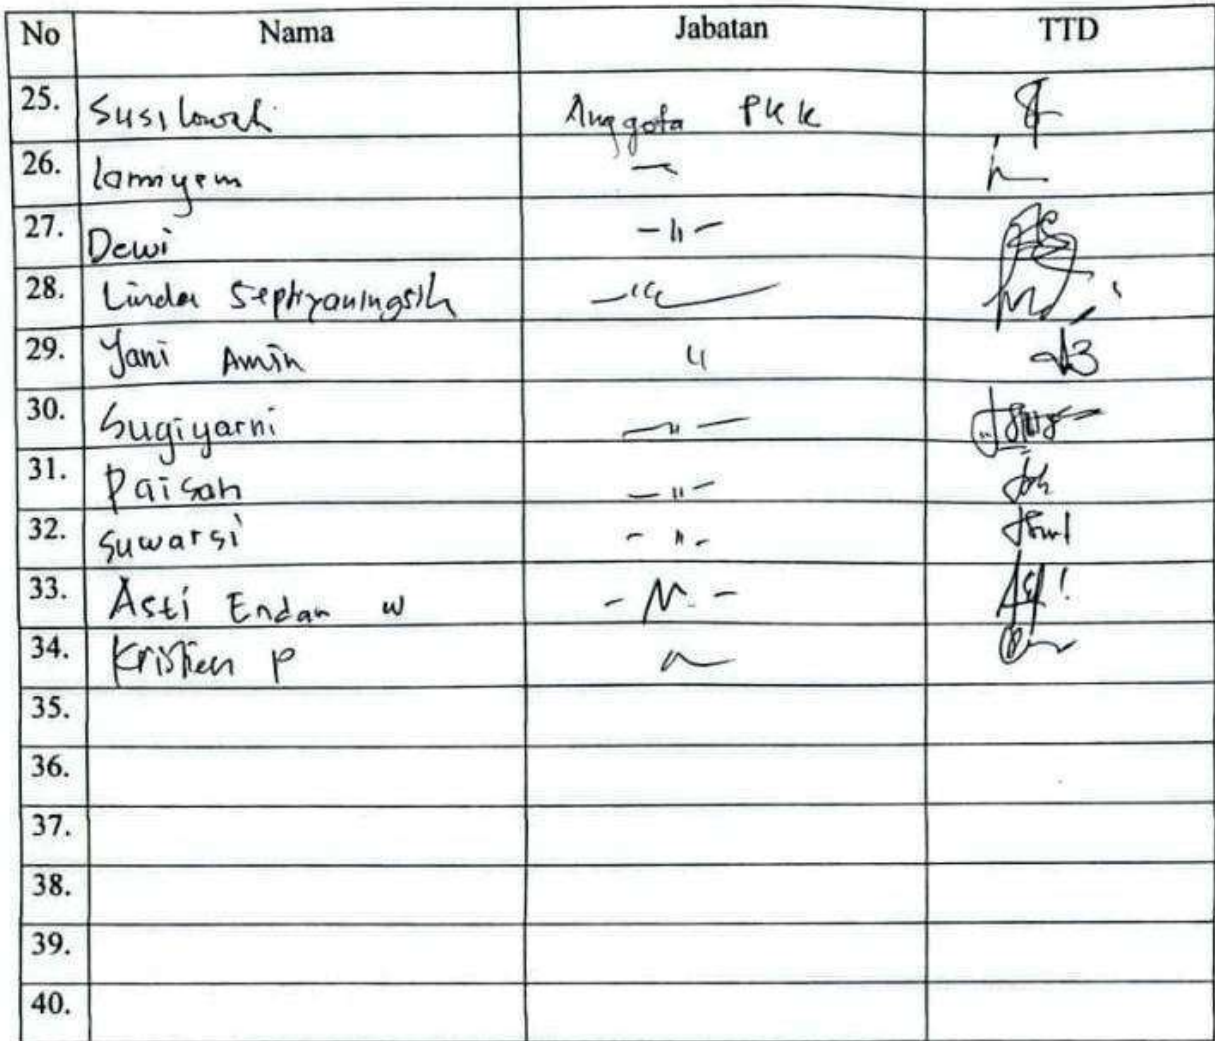 No Nama Jabatan TTD
25. Susilowati Anggota PKK
26. lamiyem
27. Dewi -"-
28. Linda Septiyaningsih
29. Yani Amin "
30. Sugiyarni -"-
31. Paisah -"-
32. Suwarsi -"-
33. Asti Endan w
34. Kristien P
35.
36.
37.
38.
39.
40.